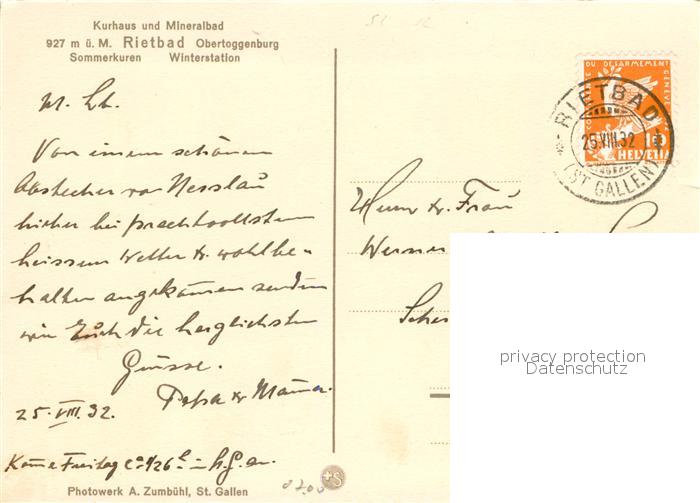 Kurhaus und Mineralbad
927 m ü. M. Rietbad Obertoggenburg
Sommerkuren Winterstation
M. Lb.
Von einem schönen
Abstecher von Nesslau
hieher bei prachtvollstem
heissem Wetter & wohlbe-
halten angekommen senden
wir Euch die herzlichsten
Grüsse.
Papa & Mama.
25. VIII. 32.
Komme Freitag
Photowerk A. Zumbühl, St. Gallen
+S
DU DESARMEMENT GENEVE
HELVETIA
RIETBAD
25.VIII.32
(ST GALLEN)
Herrn & Frau
Werner
privacy protection
Datenschutz